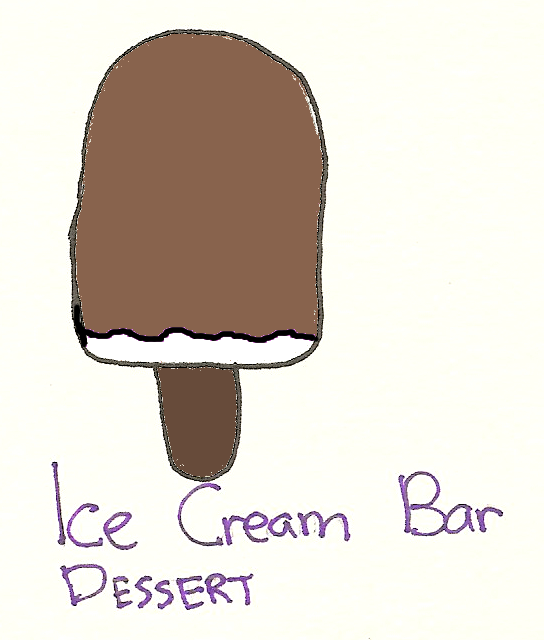 Ice Cream Bar
DESSERT